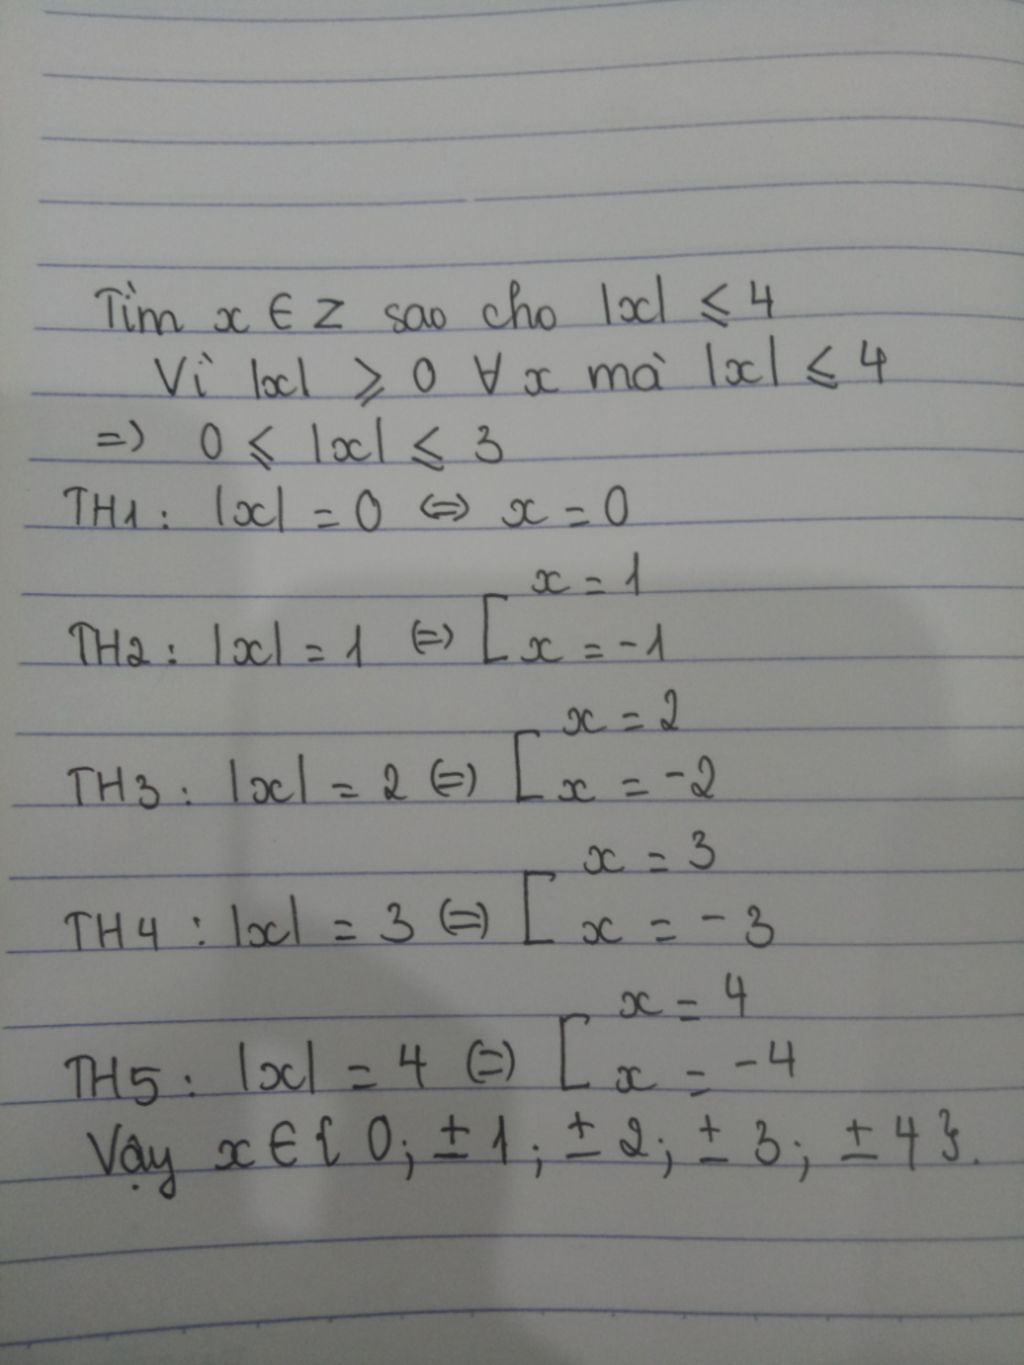 Tìm x ∈ Z sao cho |x| ⩽ 4
Vì |x| ⩾ 0 ∀ x mà |x| ⩽ 4
=> 0 ⩽ |x| ⩽ 3
TH1: |x| = 0 <=> x = 0
TH2: |x| = 1 <=> [ x = 1
x = -1
TH3: |x| = 2 <=> [ x = 2
x = -2
TH4: |x| = 3 <=> [ x = 3
x = -3
TH5: |x| = 4 <=> [ x = 4
x = -4
Vậy x ∈ { 0; ± 1; ± 2; ± 3; ± 4 }.